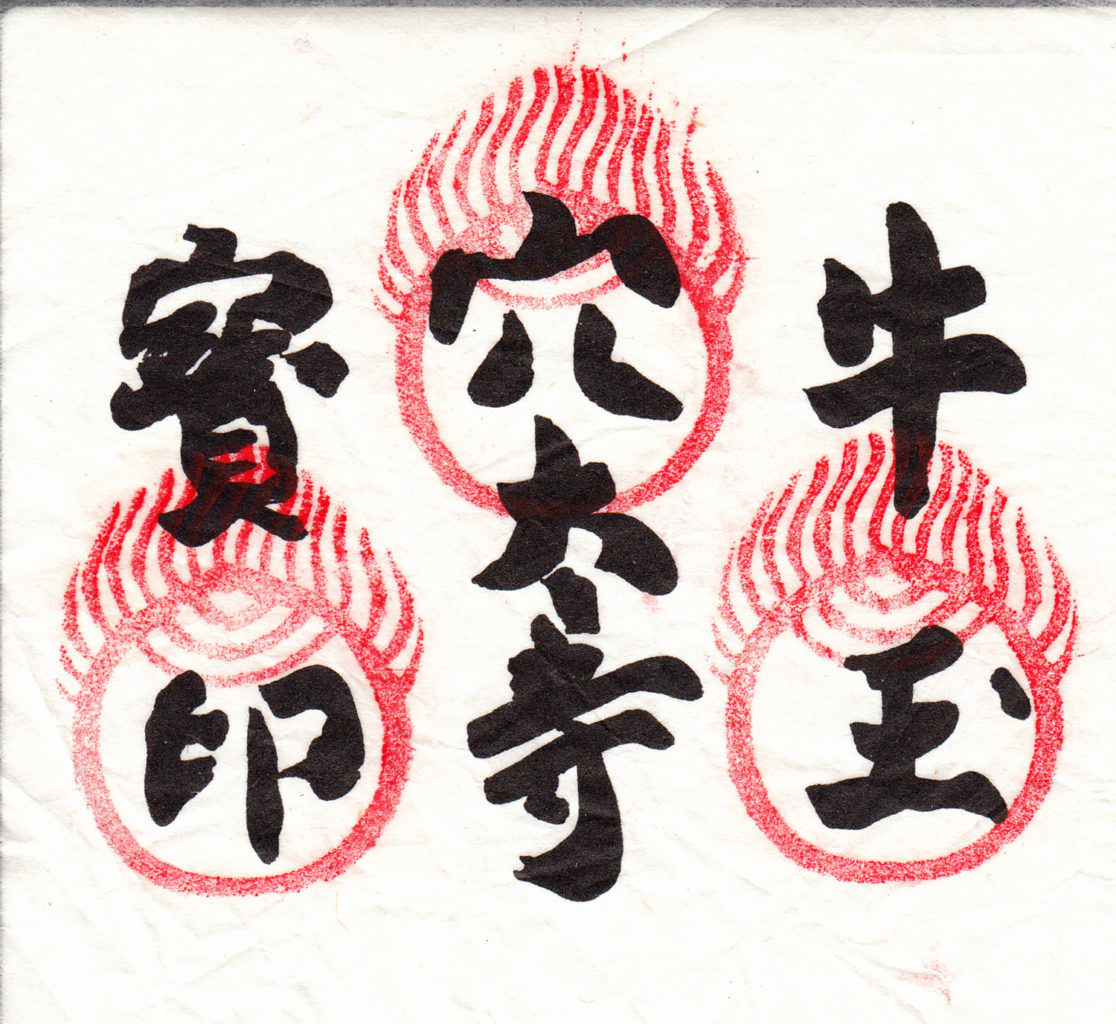 牛玉
穴太寺
寳印